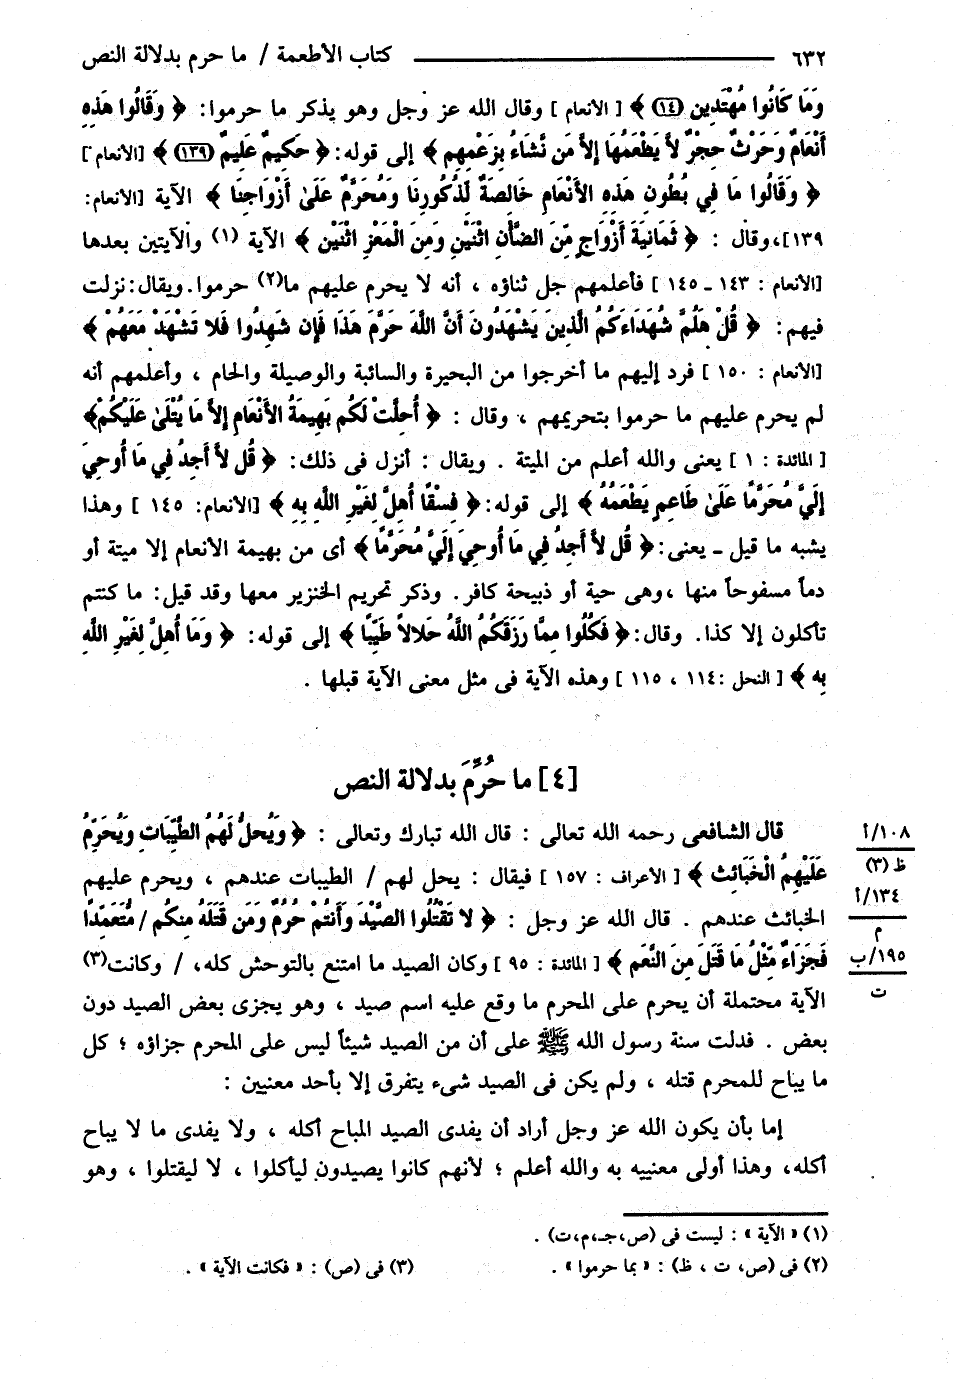 ٦٣٢ كتاب الأطعمة / ما حرم بدلالة النص
وَمَا كَانُوا مُهْتَدِينَ (١٤) ﴾ [ الأنعام ] وقال الله عز وجل وهو يذكر ما حرموا: ﴿ وَقَالُوا هَذِهِ
أَنْعَامٌ وَحَرْثٌ حِجْرٌ لاَّ يَطْعَمُهَا إلاَّ مَن نَّشَاءُ بِزَعْمِهِم ﴾ إلى قوله: ﴿ حَكِيمٌ عَلِيمٌ (١٣٩) ﴾ [الأنعام]
﴿ وَقَالُوا مَا فِي بُطُونِ هَذِهِ الأَنْعَامِ خَالِصَةٌ لِّذُكُورِنَا وَمُحَرَّمٌ عَلَىٰ أَزْوَاجِنَا ﴾ الآية [الأنعام:
١٣٩]،وقال : ﴿ ثَمَانِيَةَ أَزْوَاجٍ مِّنَ الضَّأْنِ اثْنَيْنِ وَمِنَ الْمَعْزِ اثْنَيْنِ ﴾ الآية (١) والآيتين بعدها
[الأنعام : ١٤٣ ـ ١٤٥ ] فأعلمهم جل ثناؤه ، أنه لا يحرم عليهم ما(٢) حرموا. ويقال: نزلت
فيهم: ﴿ قُلْ هَلُمَّ شُهَدَاءَكُمُ الَّذِينَ يَشْهَدُونَ أَنَّ اللَّهَ حَرَّمَ هَذَا فَإِن شَهِدُوا فَلا تَشْهَدْ مَعَهُمْ ﴾
[الأنعام : ١٥٠ ] فرد إليهم ما أخرجوا من البحيرة والسائبة والوصيلة والحام ، وأعلمهم أنه
لم يحرم عليهم ما حرموا بتحريمهم ، وقال : ﴿ أُحِلَّتْ لَكُم بَهِيمَةُ الأَنْعَامِ إِلاَّ مَا يُتْلَىٰ عَلَيْكُمْ﴾
[ المائدة : ١ ] يعنى والله أعلم من الميتة . ويقال : أنزل فى ذلك: ﴿ قُل لاَّ أَجِدُ فِي مَا أُوحِيَ
إِلَيَّ مُحَرَّمًا عَلَىٰ طَاعِمٍ يَطْعَمُهُ ﴾ إلى قوله: ﴿ فِسْقًا أُهِلَّ لِغَيْرِ اللَّهِ بِهِ ﴾ [الأنعام: ١٤٥ ] وهذا
يشبه ما قيل ـ يعنى: ﴿ قُل لاَّ أَجِدُ فِي مَا أُوحِيَ إِلَيَّ مُحَرَّمًا ﴾ أى من بهيمة الأنعام إلا ميتة أو
دماً مسفوحاً منها ،وهى حية أو ذبيحة كافر. وذكر تحريم الخنزير معها وقد قيل: ما كنتم
تأكلون إلا كذا. وقال: ﴿ فَكُلُوا مِمَّا رَزَقَكُمُ اللَّهُ حَلالاً طَيِّبًا ﴾ إلى قوله: ﴿ وَمَا أُهِلَّ لِغَيْرِ اللَّهِ
بِهِ ﴾ [ النحل :١١٤ ، ١١٥ ] وهذه الآية فى مثل معنى الآية قبلها .
[٤] ما حُرِّمَ بدلالة النص
قال الشافعى رحمه الله تعالى : قال الله تبارك وتعالى : ﴿ وَيُحِلُّ لَهُمُ الطَّيِّبَاتِ وَيُحَرِّمُ
١٠٨/أ
عَلَيْهِمُ الْخَبَائِثَ ﴾ [ الأعراف : ١٥٧ ] فيقال : يحل لهم / الطيبات عندهم ، ويحرم عليهم
ظ (٣)
١٣٤/أ
الخبائث عندهم . قال الله عز وجل : ﴿ لا تَقْتُلُوا الصَّيْدَ وَأَنتُمْ حُرُمٌ وَمَن قَتَلَهُ مِنكُم / مُّتَعَمِّدًا
م
١٩٥/ب
فَجَزَاءٌ مِّثْلُ مَا قَتَلَ مِنَ النَّعَمِ ﴾ [ المائدة : ٩٥ ] وكان الصيد ما امتنع بالتوحش كله، / وكانت(٣)
ت
الآية محتملة أن يحرم على المحرم ما وقع عليه اسم صيد ، وهو يجزى بعض الصيد دون
بعض . فدلت سنة رسول الله ﷺ على أن من الصيد شيئاً ليس على المحرم جزاؤه ؛ كل
ما يباح للمحرم قتله ، ولم يكن فى الصيد شىء يتفرق إلا بأحد معنيين :
إما بأن يكون الله عز وجل أراد أن يفدى الصيد المباح أكله ، ولا يفدى ما لا يباح
أكله، وهذا أولى معنييه به والله أعلم ؛ لأنهم كانوا يصيدون ليأكلوا ، لا ليقتلوا ، وهو
(١) « الآية » : ليست فى (ص،جـ،م،ت) .
(٢) فى (ص، ت ، ظ) : « بما حرموا » . (٣) فى (ص) : « فكانت الآية » .